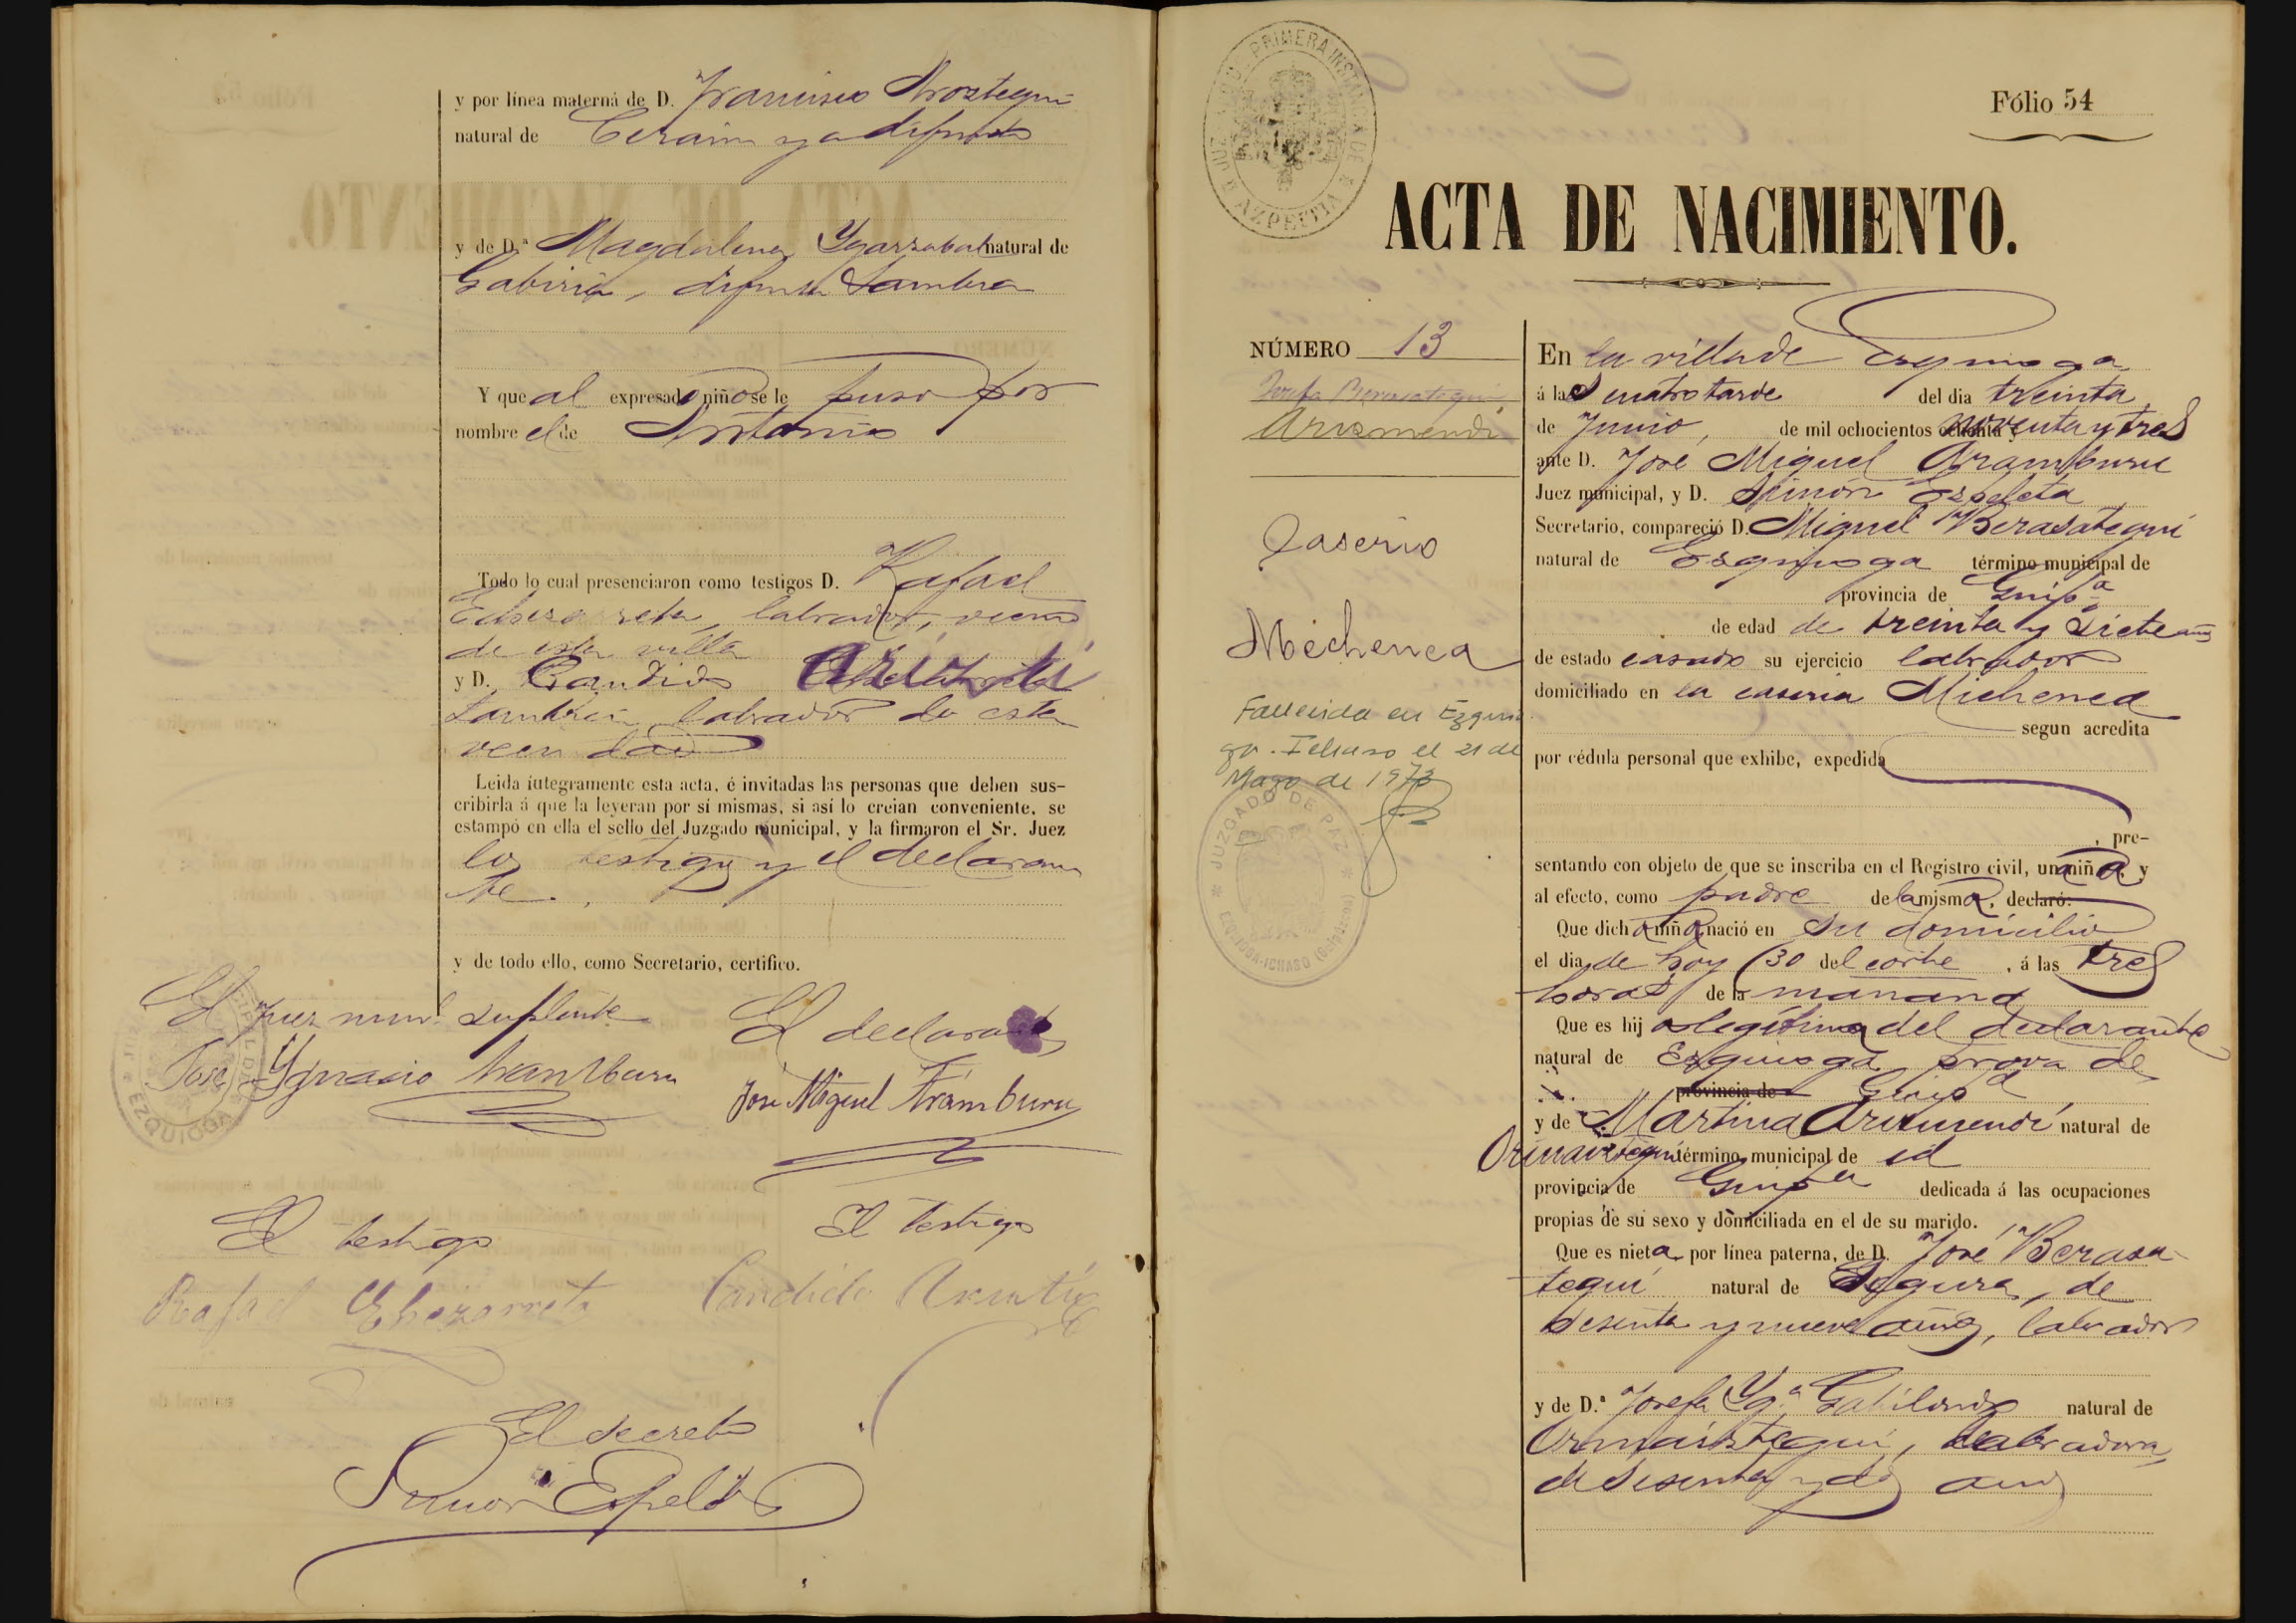 y por línea materna de D. Francisco Aroztegui
natural de Cerain ya difunto
y de D.ª Magdalena Ygarzabal natural de
Gabiria, difunta tambien
Y que al expresado niño se le puso por
nombre el de Antonio
Todo lo cual presenciaron como testigos D. Rafael
Echezarreta, labrador, vecino
de esta villa
y D. Candido
tambien labrador de esta
vecindad
Leida íntegramente esta acta, é invitadas las personas que deben sus-
cribirla á que la leyeran por sí mismas, si así lo creian conveniente, se
estampó en ella el sello del Juzgado municipal, y la firmaron el Sr. Juez
los testigos y el declaran
te.
y de todo ello, como Secretario, certifico.
El Juez munl. suplente
José Ygnacio Aramburu
El declarante
José Miguel Aramburu
El testigo
Rafael Echezarreta
El testigo
Candido
El secreto
Simon Espeleta
JUZGADO DE PRIMERA INSTANCIA DE AZPEITIA
Fólio 54
ACTA DE NACIMIENTO.
NÚMERO 13
Josefa Berasategui
Arizmendi
Caserio
Michenea
Fallecida en Ezquio
ga-Ichaso el 21 de
Mayo de 1973
JUZGADO DE PAZ
EZQUIOGA-ICHASO (Guipúzcoa)
En la villa de Ezquioga
á las cuatro tarde del dia treinta
de Junio, de mil ochocientos ochenta noventa y tres
ante D. José Miguel Aramburu
Juez municipal, y D. Simón Espeleta
Secretario, compareció D. Miguel Berasategui
natural de Ezquioga término municipal de
provincia de Guipª
de edad de treinta y siete años
de estado casado su ejercicio labrador
domiciliado en la caseria Michenea
segun acredita
por cédula personal que exhibe, expedida
, pre-
sentando con objeto de que se inscriba en el Registro civil, una niña, y
al efecto, como padre de la misma, declaró:
Que dicha niña nació en su domicilio
el dia de hoy (30 del corte , á las tres
horas de la mañana
Que es hija legítima del declarante
natural de Ezquioga prova de
provincia de Guipª
y de Martina Arizmendi natural de
Ormaiztegui término municipal de id
provincia de Guipª dedicada á las ocupaciones
propias de su sexo y domiciliada en el de su marido.
Que es nieta por línea paterna, de D. José Berasa-
tegui natural de Segura, de
sesenta y nueve años, labrador
y de D.ª Josefa Yg.ª Gabilondo natural de
Ormaiztegui, labradora,
de sesenta y dos años